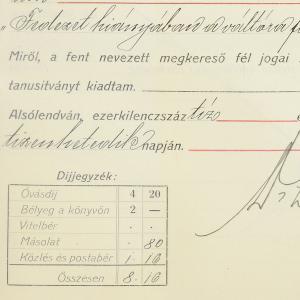 „Fedezet hiányában a váltóra
Miről, a fent nevezett megkereső fél jogai
tanusitványt kiadtam.
Alsólendván, ezerkilenczszáz tíz
tizenhetedik napján.
Díjjegyzék:
Óvásdíj 4 20
Bélyeg a könyvön 2 —
Vitelbér . .
Másolat . 80
Közlés és postabér 1 16
Összesen 8 16